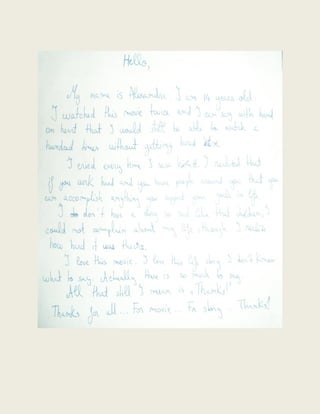 Hello,
My name is Alexandra. I am 14 years old.
I watched this movie twice and I can say with hand
on heart that I would still be able to watch a
hundred times without getting bored
I cried every time I saw I realized that
if you work hard and you have people around you that you
can accomplish anything you your goals in life
I don't have a story so sad like that I
could not complain about my life though I realize
how hard it was theirs.
I love this movie. I love this life story. I don't know
what to say. Actually, there is so much to say.
All that still I mean is "Thanks!"
Thanks for all... For movie... For story... Thanks!